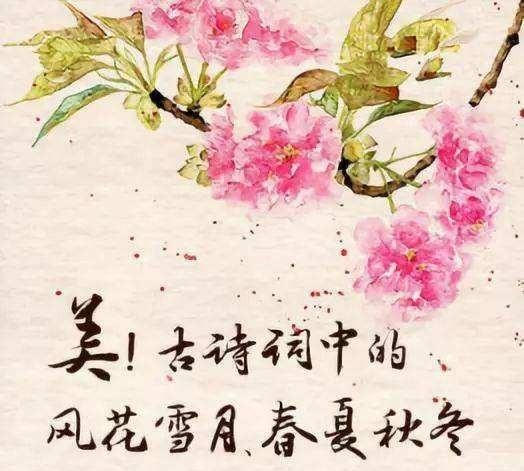 美!古诗词中的
风花雪月、春夏秋冬